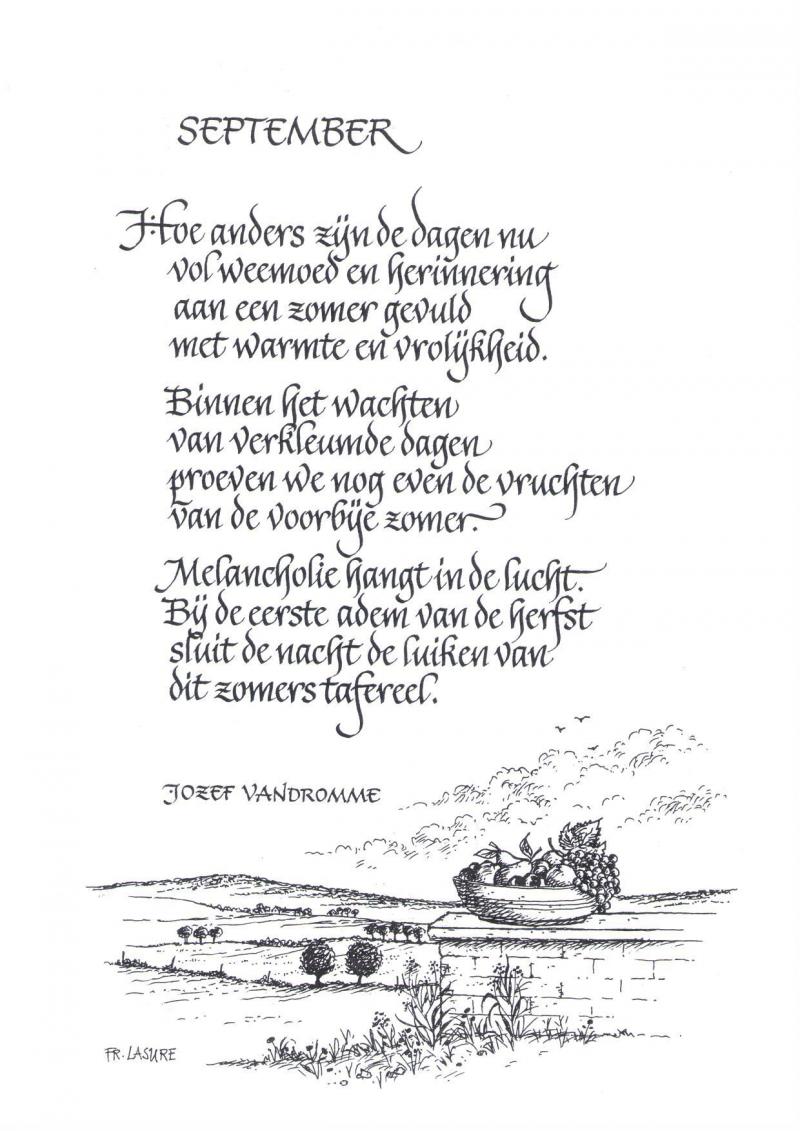 SEPTEMBER
Hoe anders zijn de dagen nu
vol weemoed en herinnering
aan een zomer gevuld
met warmte en vrolijkheid.
Binnen het wachten
van verkleumde dagen
proeven we nog even de vruchten
van de voorbije zomer.
Melancholie hangt in de lucht.
Bij de eerste adem van de herfst
sluit de nacht de luiken van
dit zomers tafereel.
JOZEF VANDROMME
FR. LASURE